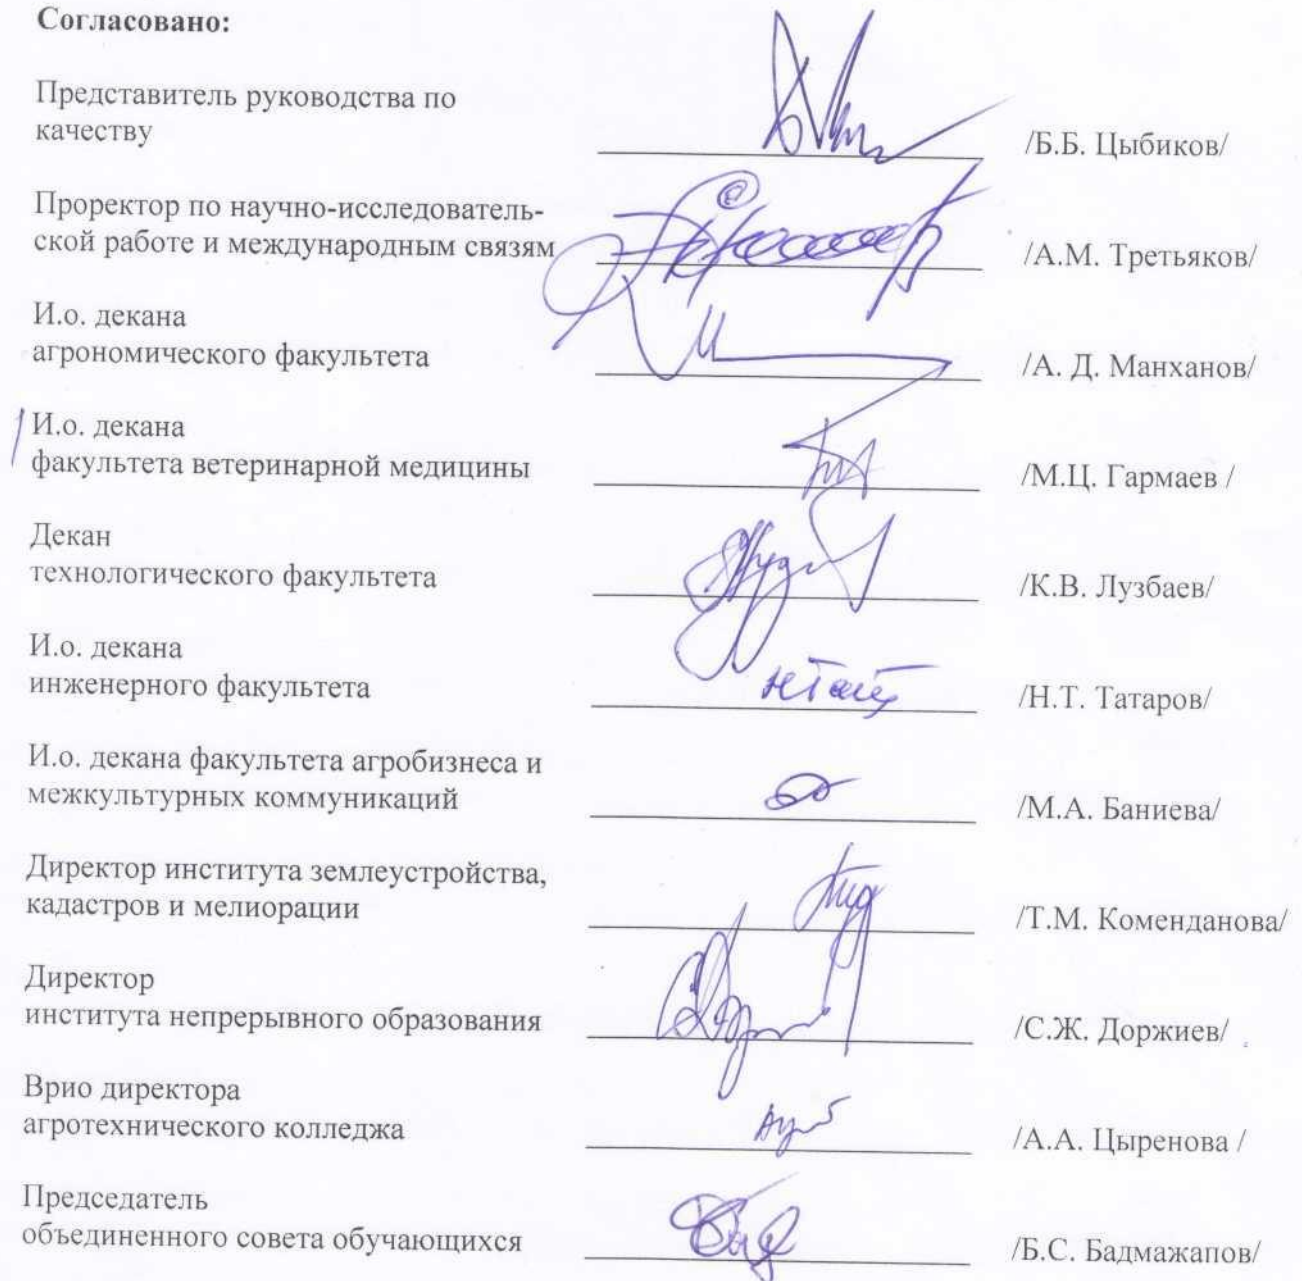 Согласовано:
Представитель руководства по
качеству
/Б.Б. Цыбиков/
Проректор по научно-исследователь-
ской работе и международным связям
/А.М. Третьяков/
И.о. декана
агрономического факультета
/А. Д. Манханов/
И.о. декана
факультета ветеринарной медицины
/М.Ц. Гармаев /
Декан
технологического факультета
/К.В. Лузбаев/
И.о. декана
инженерного факультета
/Н.Т. Татаров/
И.о. декана факультета агробизнеса и
межкультурных коммуникаций
/М.А. Баниева/
Директор института землеустройства,
кадастров и мелиорации
/Т.М. Коменданова/
Директор
института непрерывного образования
/С.Ж. Доржиев/
Врио директора
агротехнического колледжа
/А.А. Цыренова /
Председатель
объединенного совета обучающихся
/Б.С. Бадмажапов/